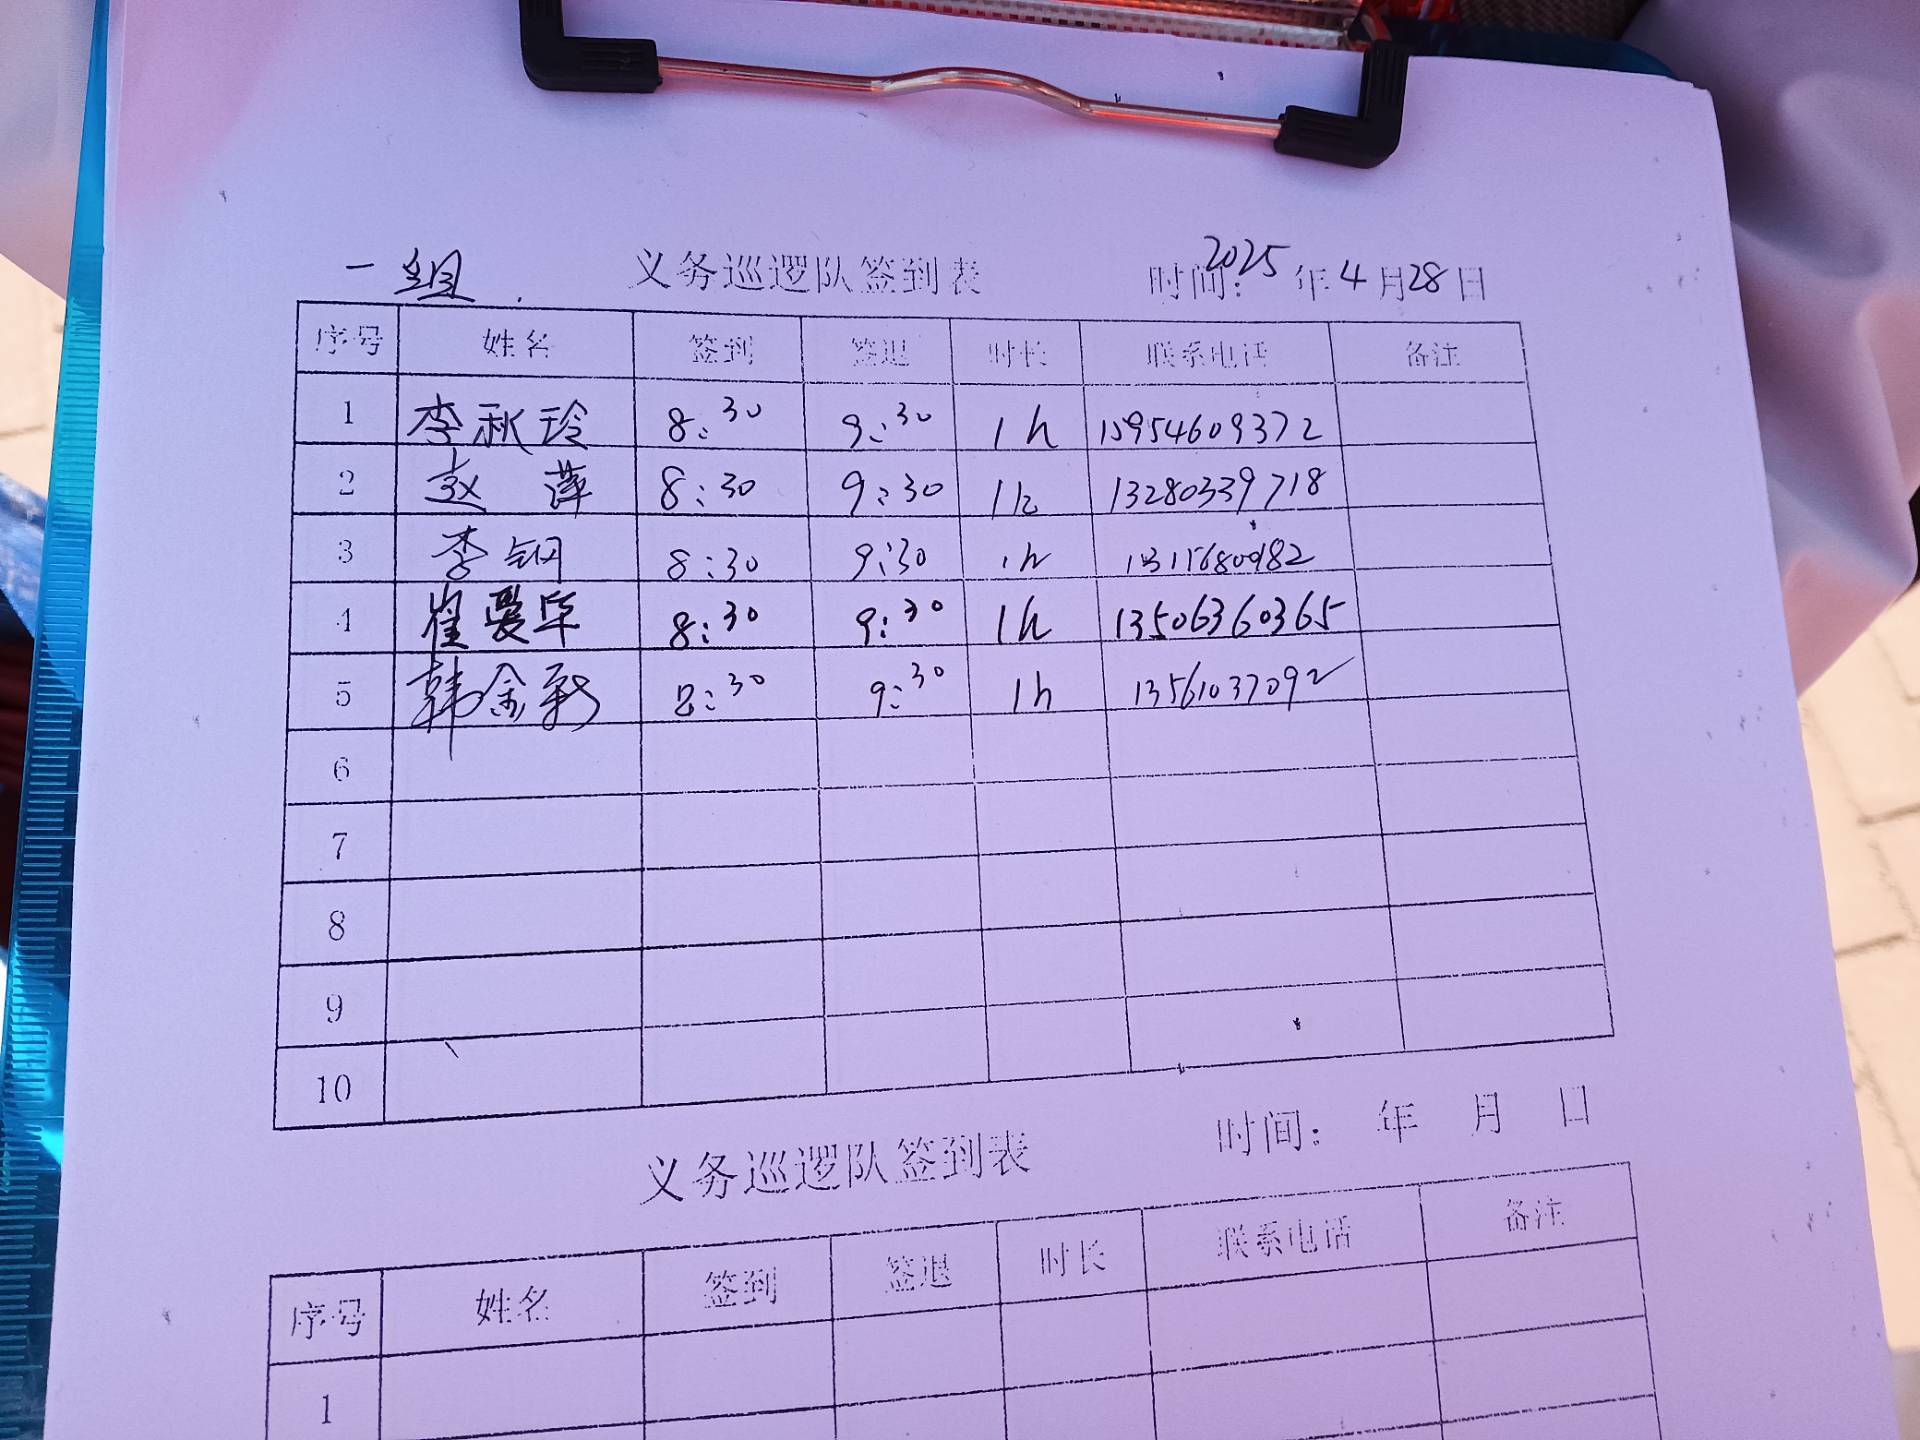 一组 义务巡逻队签到表 时间: 2025年4月28日
序号 姓名 签到 签退 时长 联系电话 备注
1 李秋玲 8:30 9:30 1h 15954609372
2 赵萍 8:30 9:30 1h 13280339718
3 李钢 8:30 9:30 1h 13115680982
4 崔爱华 8:30 9:30 1h 13506360365
5 韩金 8:30 9:30 1h 13561037092
6
7
8
9
10
义务巡逻队签到表 时间: 年 月 日
序号 姓名 签到 签退 时长 联系电话 备注
1